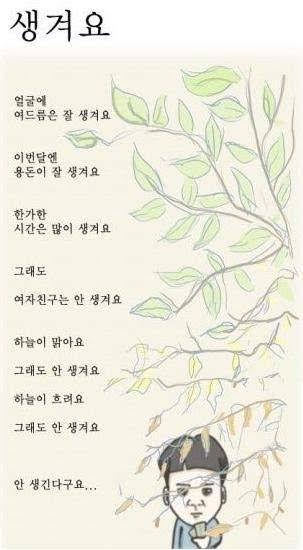 생겨요
얼굴에
여드름은 잘 생겨요
이번달엔
용돈이 잘 생겨요
한가한
시간은 많이 생겨요
그래도
여자친구는 안 생겨요
하늘이 맑아요
그래도 안 생겨요
하늘이 흐려요
그래도 안 생겨요
안 생긴다구요...